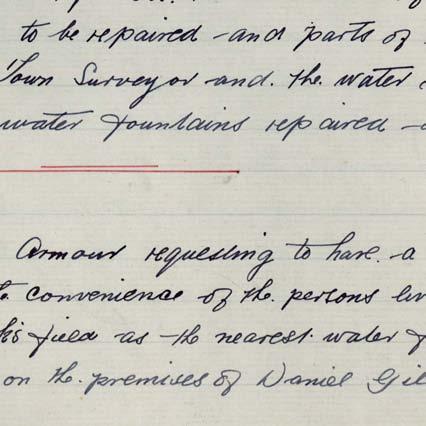 to be repaired and parts of
Town Surveyor and the water
water fountains repaired
Armour requesting to have a
convenience of the persons liv
field as the nearest water
on the premises of Daniel Gil